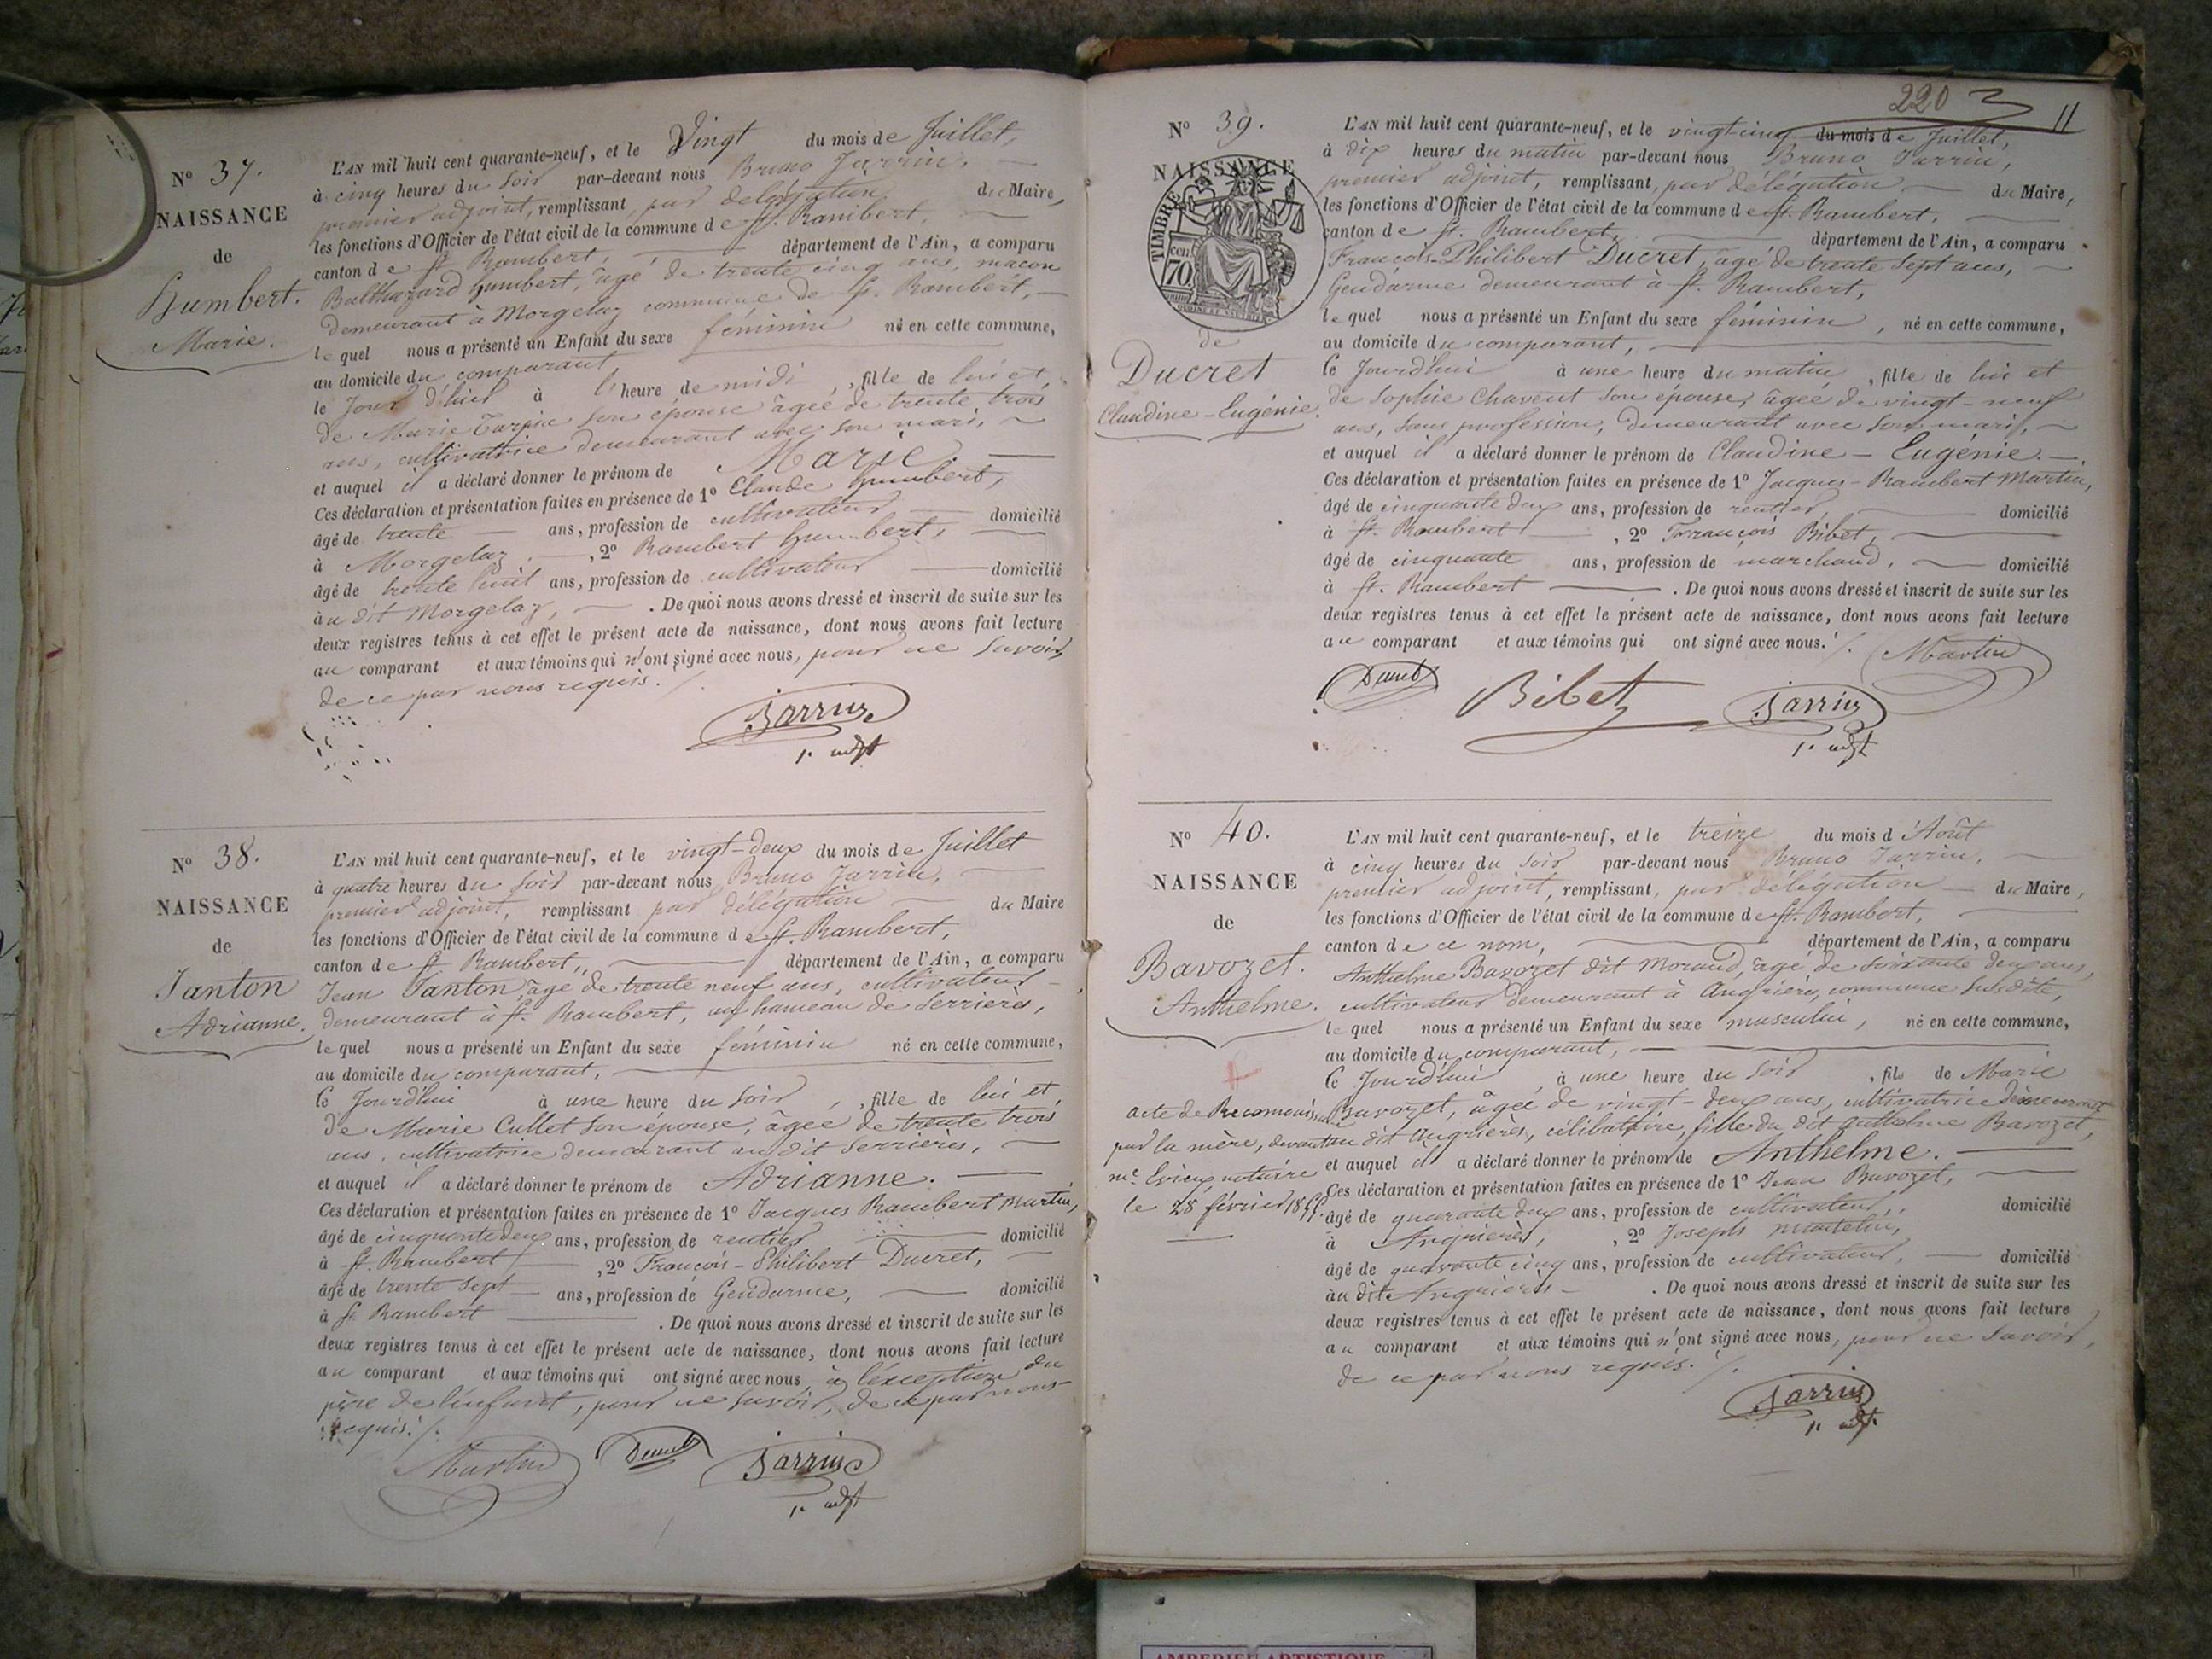 N° 37.
NAISSANCE
de
Humbert.
Marie.
L'AN mil huit cent quarante-neuf, et le Vingt du mois de Juillet,
à cinq heures du soir par-devant nous Bruno Jarrin,
premier adjoint, remplissant, par délégation du Maire,
les fonctions d'Officier de l'état civil de la commune de St. Rambert,
canton de St. Rambert, département de l'Ain, a comparu
Balthazard Humbert, âgé de trente cinq ans, maçon
demeurant à Morgelaz commune de St. Rambert,
lequel nous a présenté un Enfant du sexe féminin né en cette commune,
au domicile du comparant,
le Jour d'hier à l'heure de midi, fille de lui et,
de Marie Turpin son épouse âgée de trente trois
ans, cultivatrice demeurant avec son mari,
et auquel il a déclaré donner le prénom de Marie.
Ces déclaration et présentation faites en présence de 1° Claude Humbert,
âgé de trente ans, profession de cultivateur domicilié
à Morgelaz, 2° Rambert Humbert,
âgé de trente huit ans, profession de cultivateur domicilié
au dit Morgelaz, . De quoi nous avons dressé et inscrit de suite sur les
deux registres tenus à cet effet le présent acte de naissance, dont nous avons fait lecture
au comparant et aux témoins qui n'ont signé avec nous, pour ne savoir,
de ce par nous requis. /.
Jarrin
1er adjt
N° 38.
NAISSANCE
de
Janton
Adrianne.
L'AN mil huit cent quarante-neuf, et le vingt-deux du mois de Juillet
à quatre heures du soir par-devant nous Bruno Jarrin,
premier adjoint, remplissant par délégation du Maire
les fonctions d'Officier de l'état civil de la commune de St. Rambert,
canton de St Rambert, département de l'Ain, a comparu
Jean Janton, âgé de trente neuf ans, cultivateur
demeurant à St. Rambert, au hameau de Serrières,
lequel nous a présenté un Enfant du sexe féminin né en cette commune,
au domicile du comparant,
ce Jourd'hui à une heure du soir, fille de lui et,
de Marie Cullet son épouse, âgée de trente trois
ans, cultivatrice demeurant au dit Serrières,
et auquel il a déclaré donner le prénom de Adrianne.
Ces déclaration et présentation faites en présence de 1° Jacques Rambert Martin,
âgé de cinquante deux ans, profession de rentier domicilié
à St. Rambert, 2° François-Philibert Ducret,
âgé de trente sept ans, profession de Gendarme, domicilié
à St. Rambert . De quoi nous avons dressé et inscrit de suite sur les
deux registres tenus à cet effet le présent acte de naissance, dont nous avons fait lecture
au comparant et aux témoins qui ont signé avec nous à l'exception du
père de l'enfant, pour ne savoir, de ce par nous
requis. /.
Martin Ducret Jarrin
1er adjt
220
11
N° 39.
NAISSANCE
TIMBRE
70 cen
de
Ducret
Claudine-Eugénie.
L'AN mil huit cent quarante-neuf, et le vingt cinq du mois de Juillet,
à dix heures du matin par-devant nous Bruno Jarrin,
premier adjoint, remplissant, par délégation du Maire,
les fonctions d'Officier de l'état civil de la commune de St. Rambert,
canton de St. Rambert, département de l'Ain, a comparu
François-Philibert Ducret, âgé de trente sept ans,
Gendarme demeurant à St. Rambert,
lequel nous a présenté un Enfant du sexe féminin, né en cette commune,
au domicile du comparant,
ce Jourd'hui à une heure du matin, fille de lui et
de Sophie Chavent son épouse, âgée de vingt-neuf
ans, sans profession, demeurant avec son mari,
et auquel il a déclaré donner le prénom de Claudine-Eugénie.
Ces déclaration et présentation faites en présence de 1° Jacques-Rambert Martin,
âgé de cinquante deux ans, profession de rentier, domicilié
à St. Rambert, 2° François Bibet,
âgé de cinquante ans, profession de marchand, domicilié
à St. Rambert . De quoi nous avons dressé et inscrit de suite sur les
deux registres tenus à cet effet le présent acte de naissance, dont nous avons fait lecture
au comparant et aux témoins qui ont signé avec nous. /. Martin
Ducret Bibet Jarrin
1er adjt
N° 40.
NAISSANCE
de
Bavozet.
Anthelme.
acte de Reconnaissance
par la mère, devant
me notaire
le 28 février 1855.
L'AN mil huit cent quarante-neuf, et le treize du mois d'Août
à cinq heures du soir par-devant nous Bruno Jarrin,
premier adjoint, remplissant, par délégation du Maire,
les fonctions d'Officier de l'état civil de la commune de St. Rambert,
canton de ce nom, département de l'Ain, a comparu
Anthelme Bavozet dit Morand, âgé de soixante deux ans,
cultivateur demeurant à Angrières, commune susdite,
lequel nous a présenté un Enfant du sexe masculin, né en cette commune,
au domicile du comparant,
ce Jourd'hui, à une heure du soir, fils de Marie
Bavozet, âgée de vingt-deux ans, cultivatrice demeurant
au dit Angrières, célibataire, fille du dit Anthelme Bavozet,
et auquel il a déclaré donner le prénom de Anthelme.
Ces déclaration et présentation faites en présence de 1° Jean Bavozet,
âgé de quarante deux ans, profession de cultivateur, domicilié
à Angrières, 2° Joseph Mantelin,
âgé de quarante cinq ans, profession de cultivateur, domicilié
au dit Angrières . De quoi nous avons dressé et inscrit de suite sur les
deux registres tenus à cet effet le présent acte de naissance, dont nous avons fait lecture
au comparant et aux témoins qui n'ont signé avec nous, pour ne savoir,
de ce par nous requis. /.
Jarrin
1er adjt.
AMBERIEU ARTISTIQUE